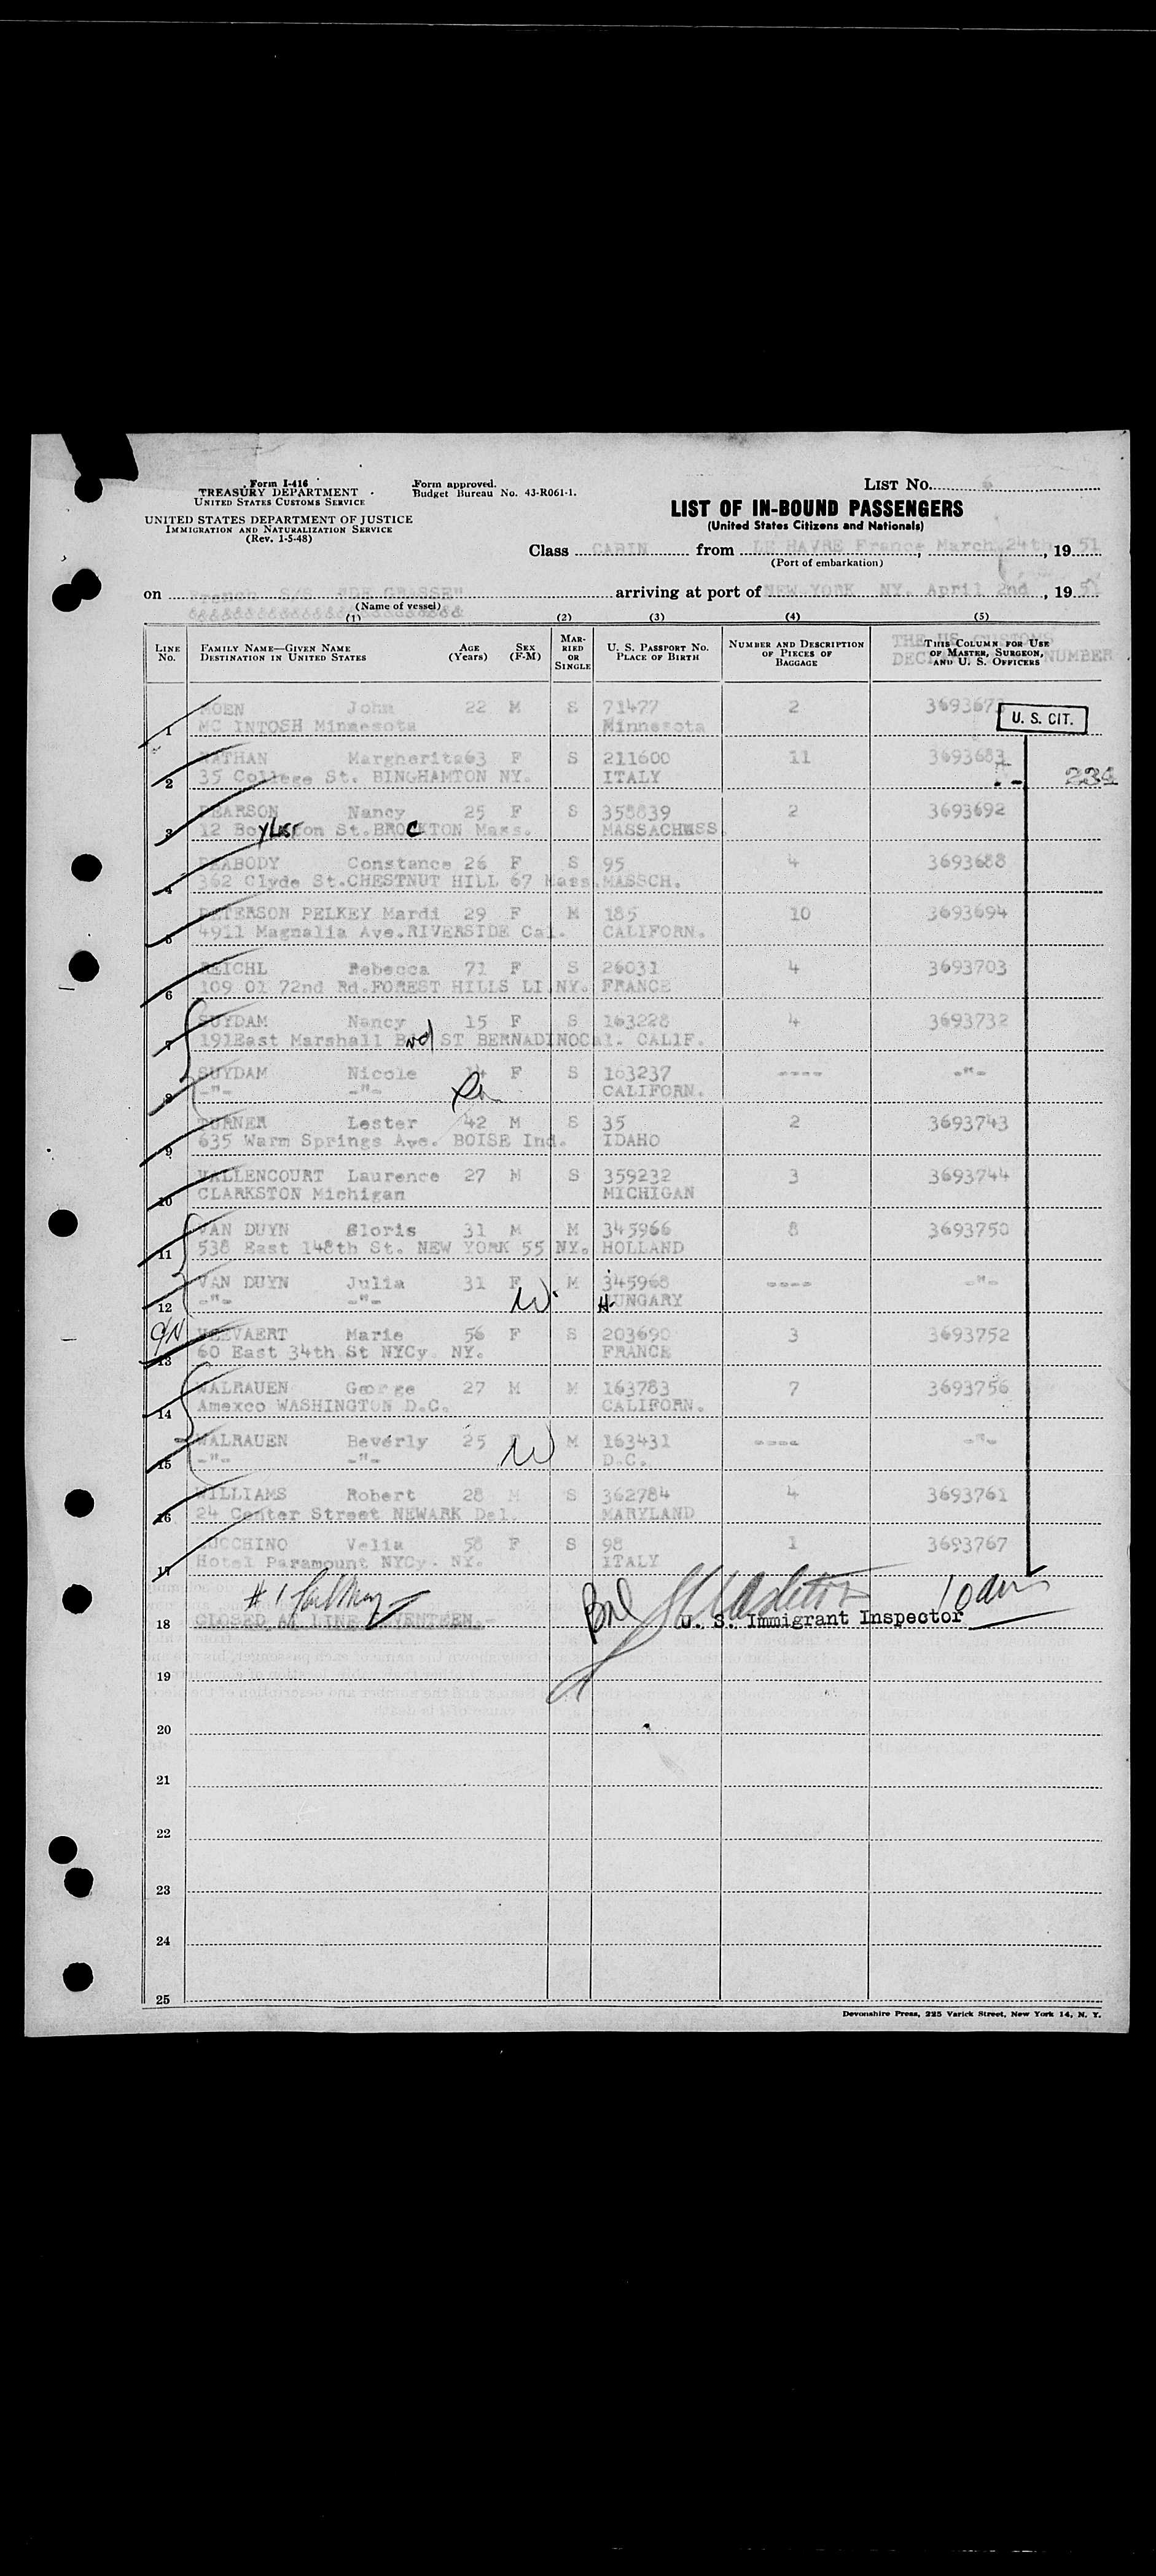 Form I-416
TREASURY DEPARTMENT
UNITED STATES CUSTOMS SERVICE
UNITED STATES DEPARTMENT OF JUSTICE
IMMIGRATION AND NATURALIZATION SERVICE
(Rev. 1-5-48)
Form approved.
Budget Bureau No. 43-R061-1.
LIST NO. 6
LIST OF IN-BOUND PASSENGERS
(United States Citizens and Nationals)
Class CABIN from LE HAVRE France March 24th, 19 51
(Port of embarkation)
on French S/S "DE GRASSE" arriving at port of NEW YORK NY. April 2nd, 19 51
(Name of vessel)
(1) (2) (3) (4) (5)
LINE NO. FAMILY NAME—GIVEN NAME DESTINATION IN UNITED STATES AGE (Years) SEX (F-M) MARRIED OR SINGLE U. S. PASSPORT NO. PLACE OF BIRTH NUMBER AND DESCRIPTION OF PIECES OF BAGGAGE THIS COLUMN FOR USE OF MASTER, SURGEON, AND U. S. OFFICERS
THE US CUSTOMS
NUMBER
1 MOEN John 22 M S 71477 2 3693673
MC INTOSH Minnesota Minnesota
U. S. CIT.
2 NATHAN Margherita 63 F S 211600 11 3693683
35 College St. BINGHAMTON NY. ITALY
234
3 PEARSON Nancy 25 F S 358839 2 3693692
12 Boylston St. BROCKTON Mass. MASSACHUSS.
4 PEABODY Constance 26 F S 95 4 3693688
362 Clyde St. CHESTNUT HILL 67 Mass. MASSCH.
5 PETERSON PELKEY Mardi 29 F M 185 10 3693694
4911 Magnalia Ave. RIVERSIDE Cal. CALIFORN.
6 REICHL Rebecca 71 F S 26031 4 3693703
109 01 72nd Rd. FOREST HILLS LI NY. FRANCE
7 SUYDAM Nancy 15 F S 163228 4 3693732
191 East Marshall Bvd ST BERNADINO Cal. CALIF.
8 SUYDAM Nicole 14 F S 163237 ---- -"-
-"- -"- CALIFORN.
9 TURNER Lester 42 M S 35 2 3693743
635 Warm Springs Ave. BOISE Ind. IDAHO
10 WALLENCOURT Laurence 27 M S 359232 3 3693744
CLARKSTON Michigan MICHIGAN
11 VAN DUYN Gloris 31 M M 345966 8 3693750
538 East 148th St. NEW YORK 55 NY. HOLLAND
12 VAN DUYN Julia 31 F M 345968 ---- -"-
-"- -"- HUNGARY
13 Marie 56 F S 203690 3 3693752
60 East 34th St NYCy. NY. FRANCE
14 WALRAUEN George 27 M M 163783 7 3693756
Amexco WASHINGTON D.C. CALIFORN.
15 WALRAUEN Beverly 25 F M 163431 ---- -"-
-"- -"- D.C.
16 WILLIAMS Robert 28 M S 362784 4 3693761
24 Center Street NEWARK Del. MARYLAND
17 ZUCCHINO Velia 58 F S 98 1 3693767
Hotel Paramount NYCy. NY. ITALY
18 CLOSED AT LINE SEVENTEEN.-
U. S. Immigrant Inspector
19
20
21
22
23
24
25
Devonshire Press, 225 Varick Street, New York 14, N. Y.